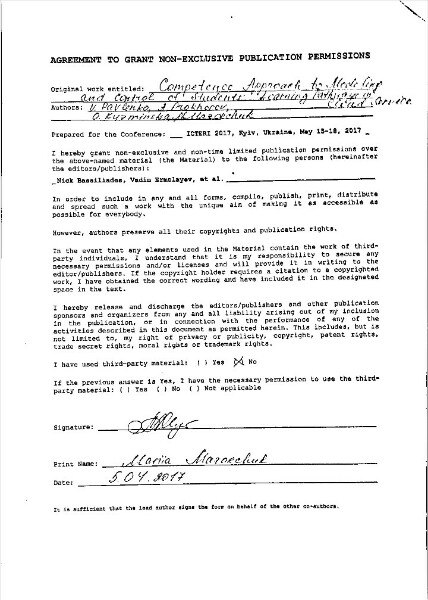 AGREEMENT TO GRANT NON-EXCLUSIVE PUBLICATION PERMISSIONS
Original work entitled: Competence Approach to Modeling
and Control of Students' Learning Pathways in
Cloud Service
Authors: V. Pavlenko, A. Prokhorov,
O. Kuzminska, M. Mazorchuk
Prepared for the Conference: ICTERI 2017, Kyiv, Ukraine, May 15-18, 2017
I hereby grant non-exclusive and non-time limited publication permissions over
the above-named material (the Material) to the following persons (hereinafter
the editors/publishers):
Nick Bassiliades, Vadim Ermolayev, et al.
In order to include in any and all forms, compile, publish, print, distribute
and spread such a work with the unique aim of making it as accessible as
possible for everybody.
However, authors preserve all their copyrights and publication rights.
In the event that any elements used in the Material contain the work of third-
party individuals, I understand that it is my responsibility to secure any
necessary permissions and/or licenses and will provide it in writing to the
editor/publishers. If the copyright holder requires a citation to a copyrighted
work, I have obtained the correct wording and have included it in the designated
space in the text.
I hereby release and discharge the editors/publishers and other publication
sponsors and organizers from any and all liability arising out of my inclusion
in the publication, or in connection with the performance of any of the
activities described in this document as permitted herein. This includes, but is
not limited to, my right of privacy or publicity, copyright, patent rights,
trade secret rights, moral rights or trademark rights.
I have used third-party material: ( ) Yes (X) No
If the previous answer is Yes, I have the necessary permission to use the third-
party material: ( ) Yes ( ) No ( ) Not applicable
Signature:
Print Name: Mariia Mazorchuk
Date: 5 04. 2017
It is sufficient that the lead author signs the form on behalf of the other co-authors.